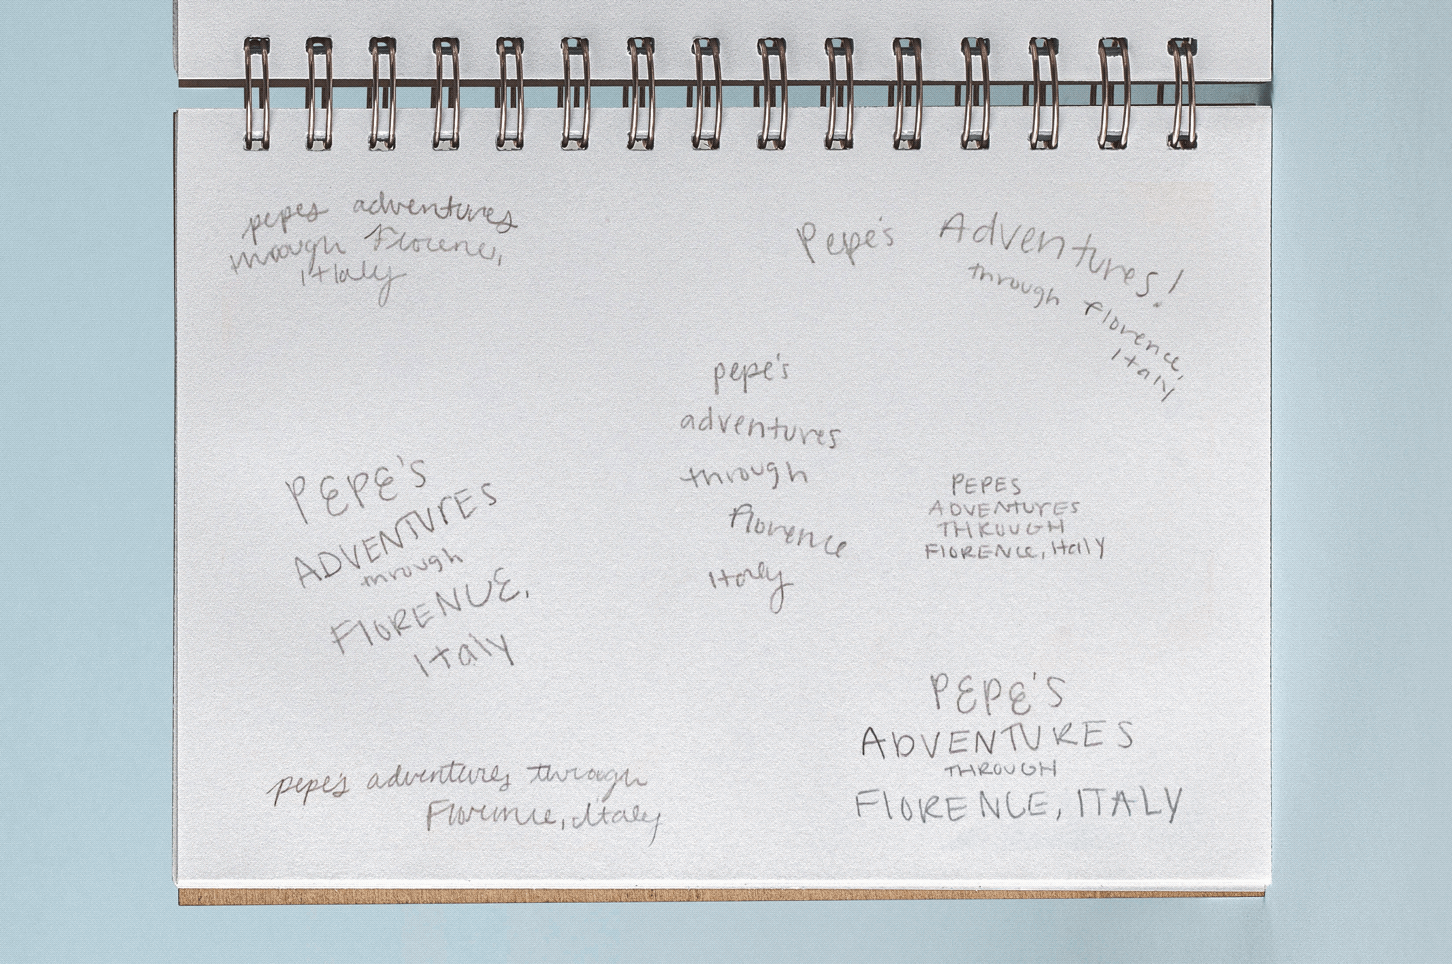 pepes adventures
through Florence,
Italy
Pepe's Adventures!
through Florence,
Italy
pepe's
adventures
through
Florence
Italy
PEPE'S
ADVENTURES
through
FLORENCE,
Italy
PEPES
ADVENTURES
THROUGH
FLORENCE, Italy
pepe's adventures through
Florence, Italy
PEPE'S
ADVENTURES
THROUGH
FLORENCE, ITALY